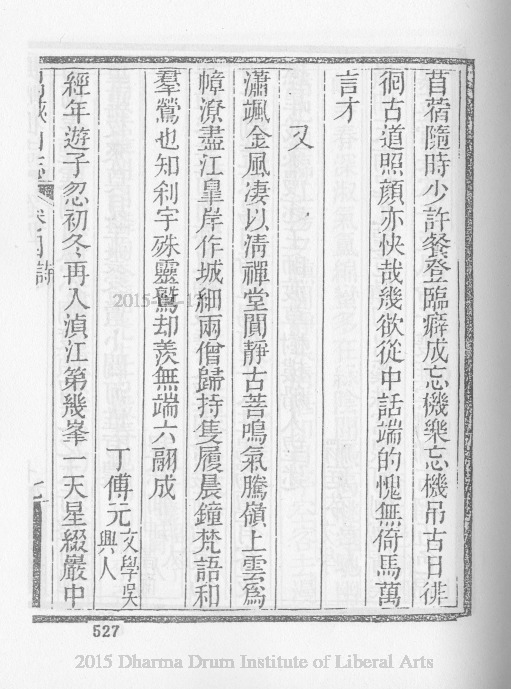 苜蓿隨時少許餐登臨癖成忘機樂忘機吊古日徘
徊古道照顏亦快哉幾欲從中話端的愧無倚馬萬
言才
又
瀟颯金風凄以清禪堂閒靜古菩鳴氣騰嶺上雲爲
幛潦盡江臯岸作城細雨僧歸持隻履晨鐘梵語和
羣鶯也知利宇殊靈鷲却羨無端六翮成
丁傅元文學吳興人
經年遊子忽初冬再入湞江第幾峯一天星綴巖中
卷四詩
七
527
2015 Dharma Drum Institute of Liberal Arts